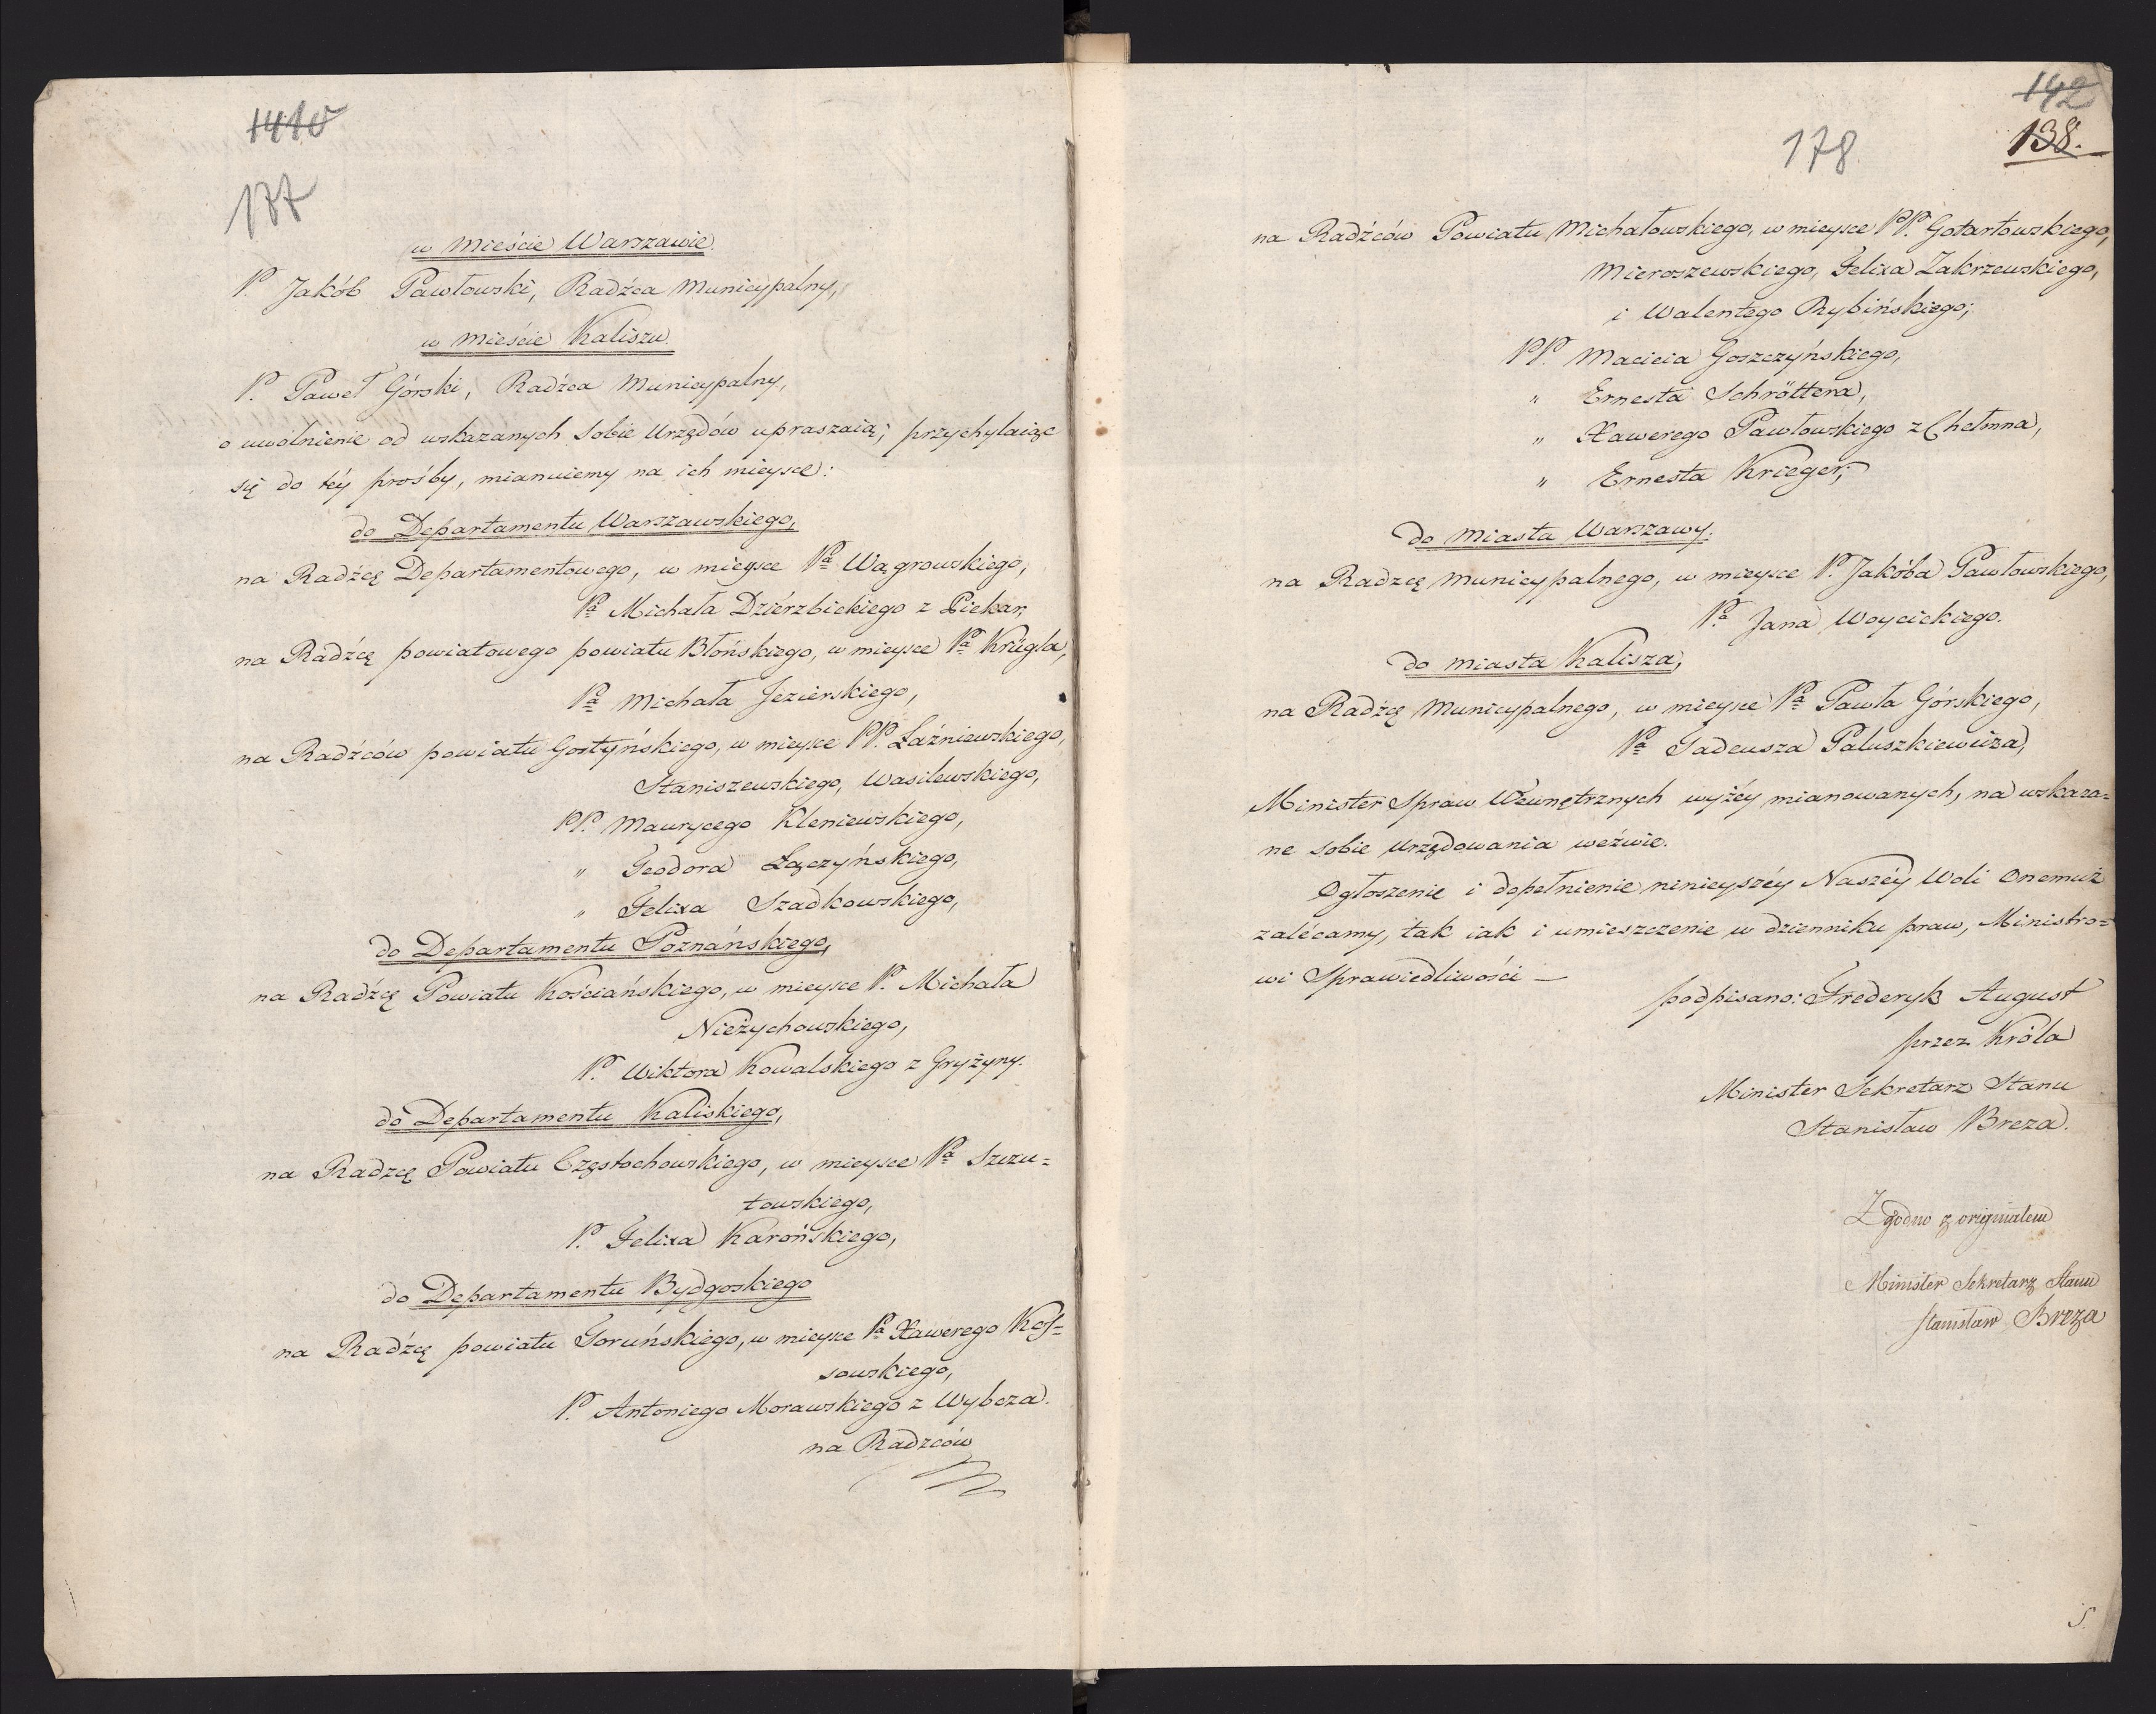 1410
177
w Mieście Warszawie.
P. Jakób Pawłowski, Radźca Municypalny,
w Mieście Kaliszu.
P. Paweł Górski, Radźca Municypalny,
o uwolnienie od wskazanych sobie Urzędów upraszaią; przychylaiąc
się do téy prośby, mianuiemy na ich mieysce:
do Departamentu Warszawskiego,
na Radźcę Departamentowego, w mieysce Pa Wągrowskiego,
Pa Michała Dzierzbickiego z Piekar,
na Radźcę powiatowego powiatu Błońskiego, w mieysce Pa Krügla,
Pa Michała Jezierskiego,
na Radźców powiatu Gostyńskiego, w mieysce PP. Łaźniewskiego,
Staniszewskiego, Wasilewskiego,
PP. Maurycego Kleniewskiego,
" Teodora Łączyńskiego,
" Felixa Szadkowskiego,
do Departamentu Poznańskiego,
na Radźcę Powiatu Kościańskiego, w mieysce P. Michała
Nieżychowskiego,
P. Wiktora Kowalskiego z Gryżyny.
do Departamentu Kaliskiego,
na Radzcę Powiatu Częstochowskiego, w mieysce Pa Szczu=
towskiego,
P. Felixa Karońskiego,
do Departamentu Bydgoskiego
na Radźcę powiatu Toruńskiego, w mieysce Pa Xawerego Kos=
sowskiego,
P. Antoniego Morawskiego z Wybcza.
na Radzców
142
138.
178
na Radźców Powiatu Michałowskiego, w mieysce PP. Gotartowskiego,
Mieroszewskiego, Felixa Zakrzewskiego,
i Walentego Rybińskiego;
PP. Macieia Goszczyńskiego,
" Ernesta Schröttera,
" Xawerego Pawłowskiego z Chełmna,
" Ernesta Krieger;
do Miasta Warszawy.
na Radzcę Municypalnego, w mieysce P. Jakóba Pawłowskiego,
Pa Jana Woycickiego.
do Miasta Kalisza,
na Radźcę Municypalnego, w mieysce Pa Pawła Górskiego,
Pa Tadeusza Paluszkiewicza,
Minister Spraw Wewnętrznych wyżéy mianowanych, na wskaza=
ne sobie urzędowania weźwie.
Ogłoszenie i dopełnienie ninieyszéy Naszéy Woli Onemuż
zalécamy, tak iak i umieszczenie w dzienniku praw, Ministro=
wi Sprawiedliwości —
podpisano: Frederyk August
przez Króla
Minister Sekretarz Stanu
Stanisław Breza.
Zgodno z originałem
Minister Sekretarz Stanu
Stanisław Breza
S.